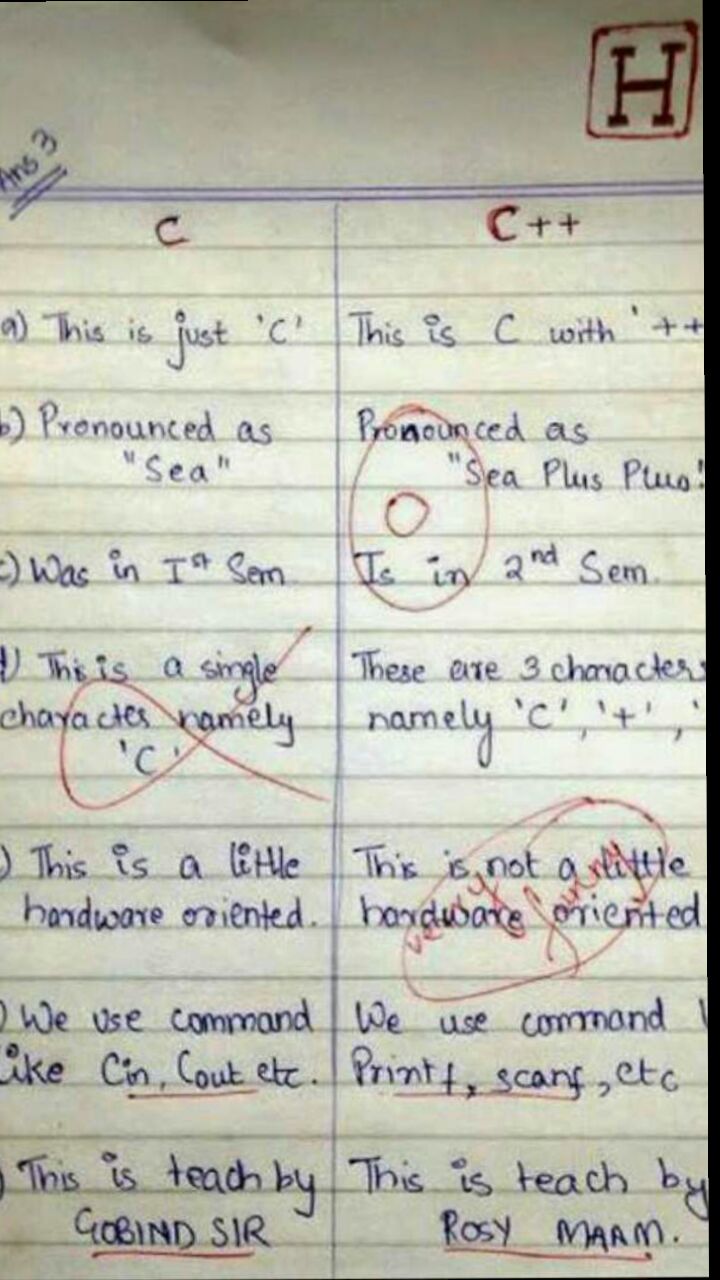 H
Ans 3
C
C++
a) This is just 'C'
This is C with '++
b) Pronounced as
"Sea"
Pronounced as
"Sea Plus Plus"
0
c) Was in Ist Sem
Is in 2nd Sem.
d) This is a single
character namely
'C'
These are 3 characters
namely 'C', '+', '
) This is a little
hardware oriented.
This is not a little
hardware oriented
very funny
) We use command
Like Cin, Cout etc.
We use command
Printf, scanf, etc
) This is teach by
GOBIND SIR
This is teach by
ROSY MAAM.